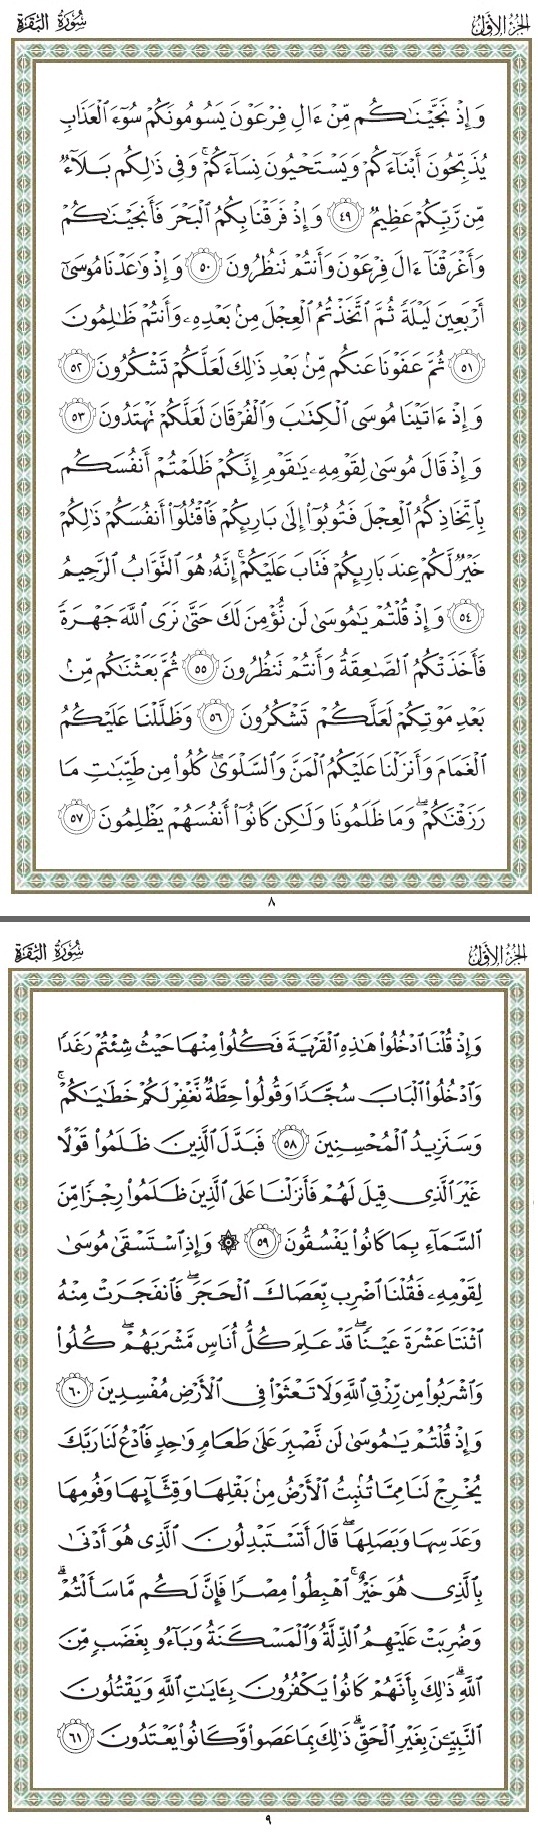 الجزء الأول
سورة البقرة
وَإِذْ نَجَّيْنَٰكُم مِّنْ ءَالِ فِرْعَوْنَ يَسُومُونَكُمْ سُوٓءَ ٱلْعَذَابِ
يُذَبِّحُونَ أَبْنَآءَكُمْ وَيَسْتَحْيُونَ نِسَآءَكُمْ ۚ وَفِى ذَٰلِكُم بَلَآءٌ
مِّن رَّبِّكُمْ عَظِيمٌ ٤٩ وَإِذْ فَرَقْنَا بِكُمُ ٱلْبَحْرَ فَأَنجَيْنَٰكُمْ
وَأَغْرَقْنَآ ءَالَ فِرْعَوْنَ وَأَنتُمْ تَنظُرُونَ ٥٠ وَإِذْ وَٰعَدْنَا مُوسَىٰٓ
أَرْبَعِينَ لَيْلَةً ثُمَّ ٱتَّخَذْتُمُ ٱلْعِجْلَ مِنۢ بَعْدِهِۦ وَأَنتُمْ ظَٰلِمُونَ
٥١ ثُمَّ عَفَوْنَا عَنكُم مِّنۢ بَعْدِ ذَٰلِكَ لَعَلَّكُمْ تَشْكُرُونَ ٥٢
وَإِذْ ءَاتَيْنَا مُوسَى ٱلْكِتَٰبَ وَٱلْفُرْقَانَ لَعَلَّكُمْ تَهْتَدُونَ ٥٣
وَإِذْ قَالَ مُوسَىٰ لِقَوْمِهِۦ يَٰقَوْمِ إِنَّكُمْ ظَلَمْتُمْ أَنفُسَكُم
بِٱتِّخَاذِكُمُ ٱلْعِجْلَ فَتُوبُوٓا۟ إِلَىٰ بَارِئِكُمْ فَٱقْتُلُوٓا۟ أَنفُسَكُمْ ذَٰلِكُمْ
خَيْرٌ لَّكُمْ عِندَ بَارِئِكُمْ فَتَابَ عَلَيْكُمْ ۚ إِنَّهُۥ هُوَ ٱلتَّوَّابُ ٱلرَّحِيمُ
٥٤ وَإِذْ قُلْتُمْ يَٰمُوسَىٰ لَن نُّؤْمِنَ لَكَ حَتَّىٰ نَرَى ٱللَّهَ جَهْرَةً
فَأَخَذَتْكُمُ ٱلصَّٰعِقَةُ وَأَنتُمْ تَنظُرُونَ ٥٥ ثُمَّ بَعَثْنَٰكُم مِّنۢ
بَعْدِ مَوْتِكُمْ لَعَلَّكُمْ تَشْكُرُونَ ٥٦ وَظَلَّلْنَا عَلَيْكُمُ
ٱلْغَمَامَ وَأَنزَلْنَا عَلَيْكُمُ ٱلْمَنَّ وَٱلسَّلْوَىٰ ۖ كُلُوا۟ مِن طَيِّبَٰتِ مَا
رَزَقْنَٰكُمْ ۖ وَمَا ظَلَمُونَا وَلَٰكِن كَانُوٓا۟ أَنفُسَهُمْ يَظْلِمُونَ ٥٧
٨
الجزء الأول
سورة البقرة
وَإِذْ قُلْنَا ٱدْخُلُوا۟ هَٰذِهِ ٱلْقَرْيَةَ فَكُلُوا۟ مِنْهَا حَيْثُ شِئْتُمْ رَغَدًا
وَٱدْخُلُوا۟ ٱلْبَابَ سُجَّدًا وَقُولُوا۟ حِطَّةٌ نَّغْفِرْ لَكُمْ خَطَٰيَٰكُمْ ۚ
وَسَنَزِيدُ ٱلْمُحْسِنِينَ ٥٨ فَبَدَّلَ ٱلَّذِينَ ظَلَمُوا۟ قَوْلًا
غَيْرَ ٱلَّذِى قِيلَ لَهُمْ فَأَنزَلْنَا عَلَى ٱلَّذِينَ ظَلَمُوا۟ رِجْزًا مِّنَ
ٱلسَّمَآءِ بِمَا كَانُوا۟ يَفْسُقُونَ ٥٩ ۞ وَإِذِ ٱسْتَسْقَىٰ مُوسَىٰ
لِقَوْمِهِۦ فَقُلْنَا ٱضْرِب بِّعَصَاكَ ٱلْحَجَرَ ۖ فَٱنفَجَرَتْ مِنْهُ
ٱثْنَتَا عَشْرَةَ عَيْنًا ۖ قَدْ عَلِمَ كُلُّ أُنَاسٍ مَّشْرَبَهُمْ ۖ كُلُوا۟
وَٱشْرَبُوا۟ مِن رِّزْقِ ٱللَّهِ وَلَا تَعْثَوْا۟ فِى ٱلْأَرْضِ مُفْسِدِينَ ٦٠
وَإِذْ قُلْتُمْ يَٰمُوسَىٰ لَن نَّصْبِرَ عَلَىٰ طَعَامٍ وَٰحِدٍ فَٱدْعُ لَنَا رَبَّكَ
يُخْرِجْ لَنَا مِمَّا تُنۢبِتُ ٱلْأَرْضُ مِنۢ بَقْلِهَا وَقِثَّآئِهَا وَفُومِهَا
وَعَدَسِهَا وَبَصَلِهَا ۖ قَالَ أَتَسْتَبْدِلُونَ ٱلَّذِى هُوَ أَدْنَىٰ
بِٱلَّذِى هُوَ خَيْرٌ ۚ ٱهْبِطُوا۟ مِصْرًا فَإِنَّ لَكُم مَّا سَأَلْتُمْ ۗ
وَضُرِبَتْ عَلَيْهِمُ ٱلذِّلَّةُ وَٱلْمَسْكَنَةُ وَبَآءُو بِغَضَبٍ مِّنَ
ٱللَّهِ ۗ ذَٰلِكَ بِأَنَّهُمْ كَانُوا۟ يَكْفُرُونَ بِـَٔايَٰتِ ٱللَّهِ وَيَقْتُلُونَ
ٱلنَّبِيِّـۧنَ بِغَيْرِ ٱلْحَقِّ ۗ ذَٰلِكَ بِمَا عَصَوا۟ وَّكَانُوا۟ يَعْتَدُونَ ٦١
٩